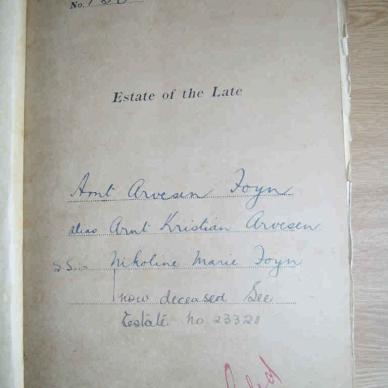 No.
Estate of the Late
Arnt Arvesen Foyn
alias Arnt Kristian Arvesen
Nikoline Marie Foyn
now deceased See
Estate No 23321